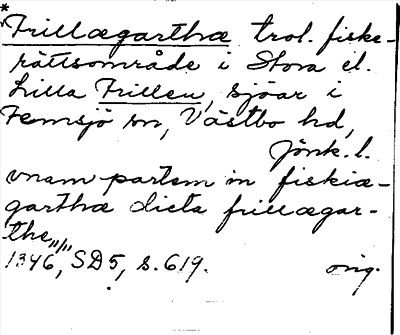 *Frillægarthæ trol. fiske-
rättsområde i Stora el.
Lilla Frillen, sjöar i
Femsjö sn, Västbo hd,
Jönk. l.
vnam partem in fiskiæ-
garthæ dicta frillægar-
the,,/"
1346, SD5, s. 619. orig.